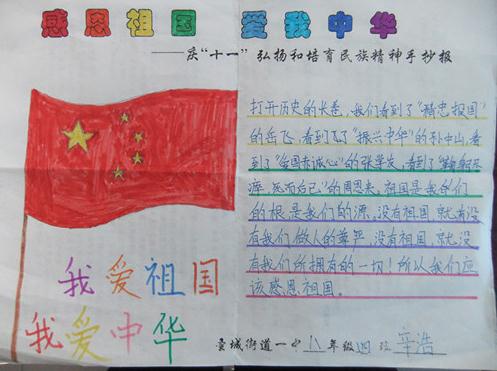 感恩祖国 爱我中华
——庆“十一”弘扬和培育民族精神手抄报
打开历史的长卷，我们看到了“精忠报国”
的岳飞，看到了“振兴中华”的孙中山，看
到了“爱国赤诚心”的张学，看到了“鞠躬尽
瘁，死而后已”的周恩来。祖国是我们
的根是我们的源。没有祖国，就没有没
有我们做人的尊严，没有祖国，就没
有我们所拥有的一切！所以我们应
该感恩祖国。
我爱祖国
我爱中华
城街道一中 八年级四班 辛浩